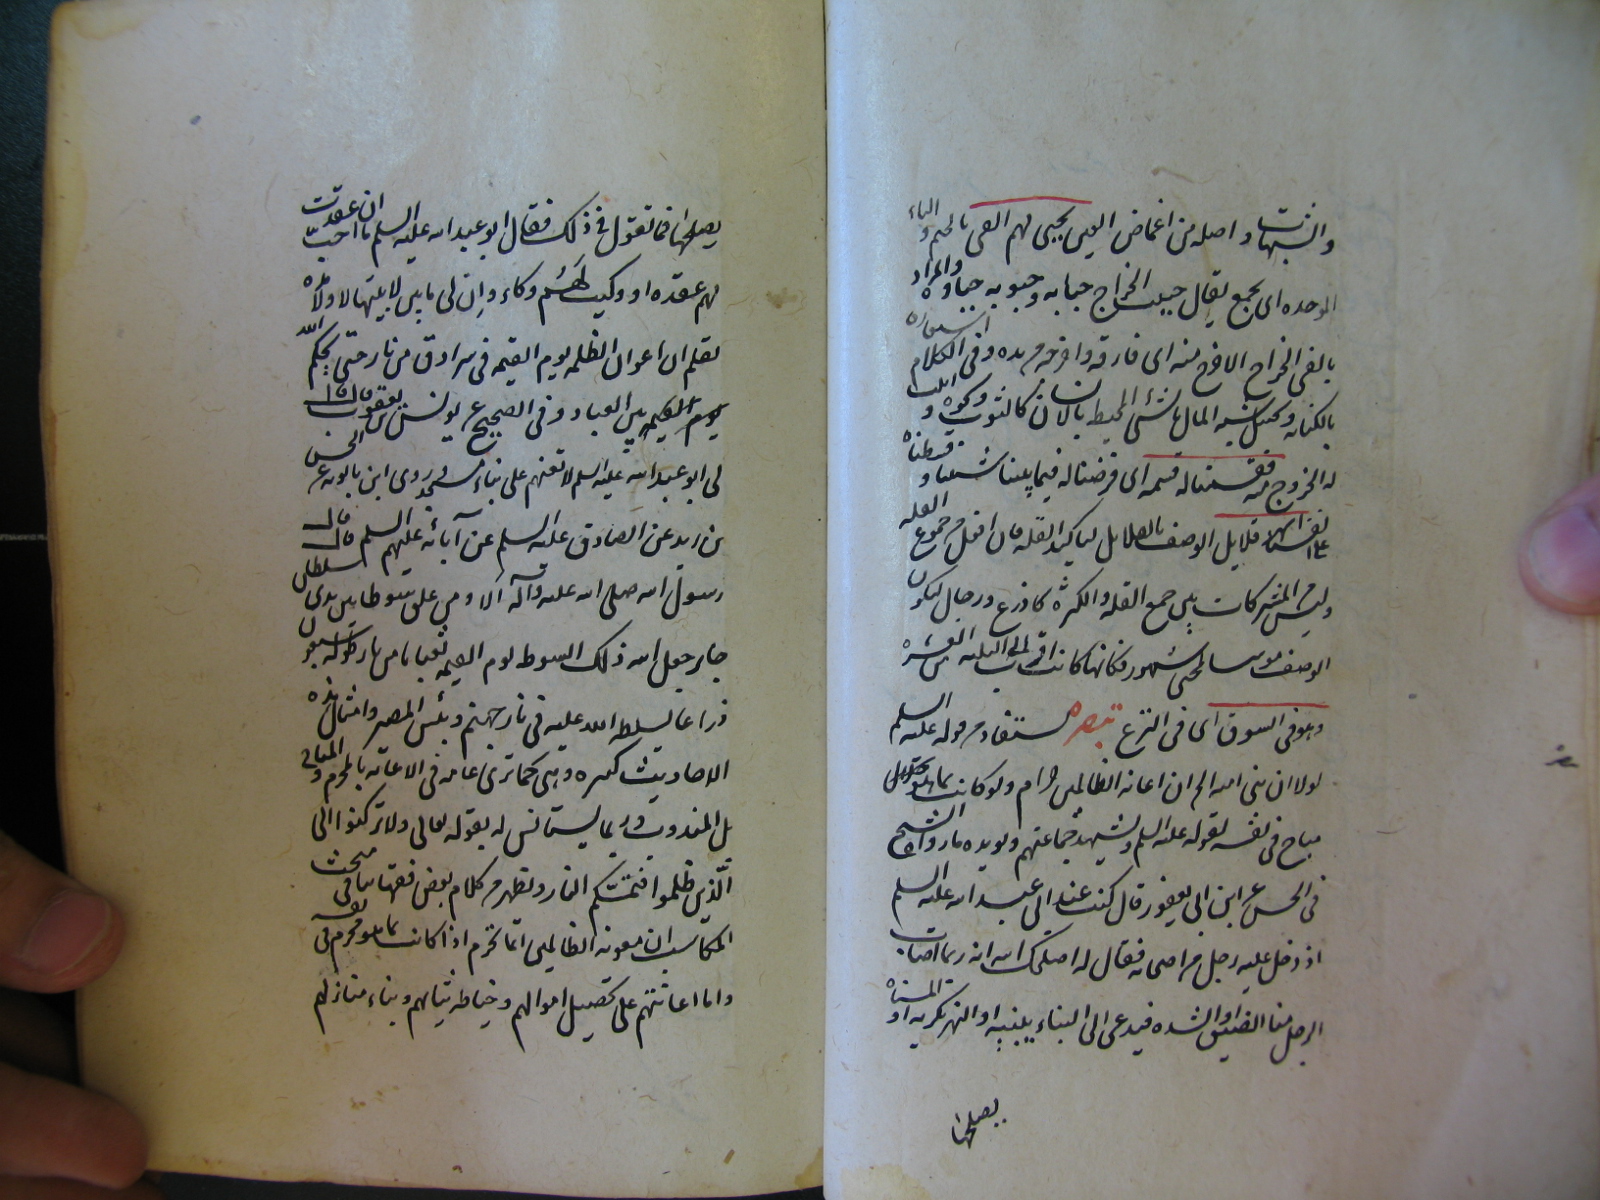 والشبهات واصله من اغماض العين يجبى لهم الفى بالجيم والباء
الموحده اى يجمع يقال جبيت الخراج جبايه وجبوبه جباوه والمراد
بالفى الخراج الافرخ منه اى فارقه واخرجه من يده وفى الكلام استعاره
بالكنايه وتخييل شبه المال بالشئ المحيط بالانسان كالثوب ونحوه واثبت
له الخروج منه فقسمناله قسمه اى فرضناله فيما بيننا شيئا وقسطناه
على انفسنا اشهر قلايل الوصف بالقلايل لتاكيد القله فان افعل من جموع القله
وليس من المشتركات بين جمع القله والكثره كاذرع ورجال ليكون
الوصف موسسا لمحتى شهور فكانها كانت اقرب الى الثلثه من العشره
وهو فى السوق اى فى النزع تبصره مستفاد من قوله عليه السلم
لولا ان بنى اميه الخ ان اعانه الظالمين حرام ولو كانت بما هو
مباح فى نفسه لقوله عليه السلم ويشهد جماعتهم ويويده مارواه الشيخ
فى الحسن عن ابن ابى يعفور قال كنت عند ابى عبد الله عليه السلم
اذ دخل عليه رجل من اصحابه فقال له اصلحك الله انه ربما اصاب
الرجل منا الضيق او الشده فيدعى الى البناء يبنيه او النهر يكريه او المسناه
يصلحها
يصلحها فما تقول فى ذلك فقال ابو عبد الله عليه السلم ما احب ان عقدت
لهم عقده او وكيت لهم وكاء وان لى ما بين لابتيها لا ولا مده
بقلم ان اعوان الظلمه يوم القيمه فى سرادق من نار حتى يحكم الله
يوم القيمه بين العباد وفى الصحيح عن يونس بن يعقوب قال قال
لى ابو عبد الله عليه السلم لا تعنهم على بناء مسجد وروى ابن بابويه عن الحسن
بن زيد عن الصادق عليه السلم عن آبائه عليهم السلم قال قال
رسول الله صلى الله عليه وآله ألا ومن علق سوطا بين يدى سلطان
جاير جعل الله ذلك السوط يوم القيمه ثعبانا من نار طوله سبعون
ذراعا يسلطه الله عليه فى نار جهنم وبئس المصير وامثال هذه
الاحاديث كثيره وهى كما ترى عامه فى الاعانه بالمحرم والمباح
بل المندوب وربما يستانس له بقوله تعالى ولا تركنوا الى
الذين ظلموا فتمسكم النار ويظهر من كلام بعض فقهائنا فى مبحث
المكاسب ان معونه الظالمين انما تحرم اذا كانت بما هو محرم فى نفسه
واما اعانتهم على تحصيل اموالهم وخياطه ثيابهم وبناء منازلهم